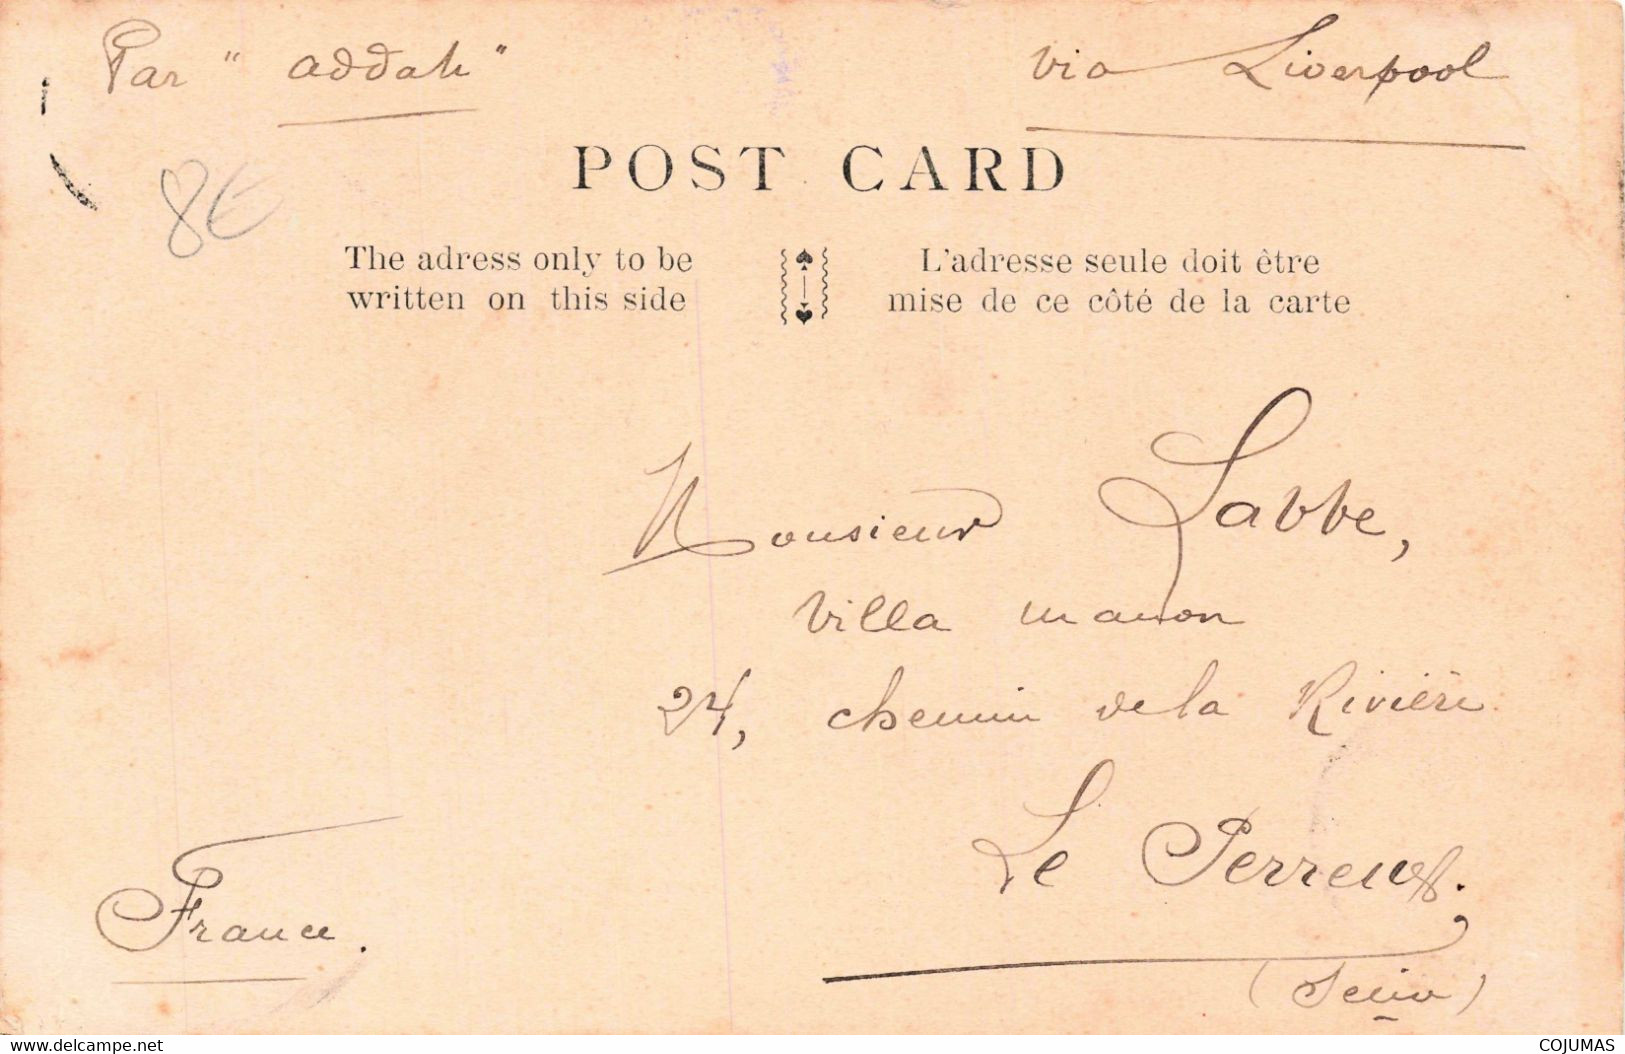 Par "addah"
via Liverpool
8€
POST CARD
The adress only to be
written on this side
L'adresse seule doit être
mise de ce côté de la carte
Monsieur Labbe,
Villa Manon
24, chemin de la Rivière
Le Perreux.
(Seine)
France.
www.delcampe.net
COJUMAS